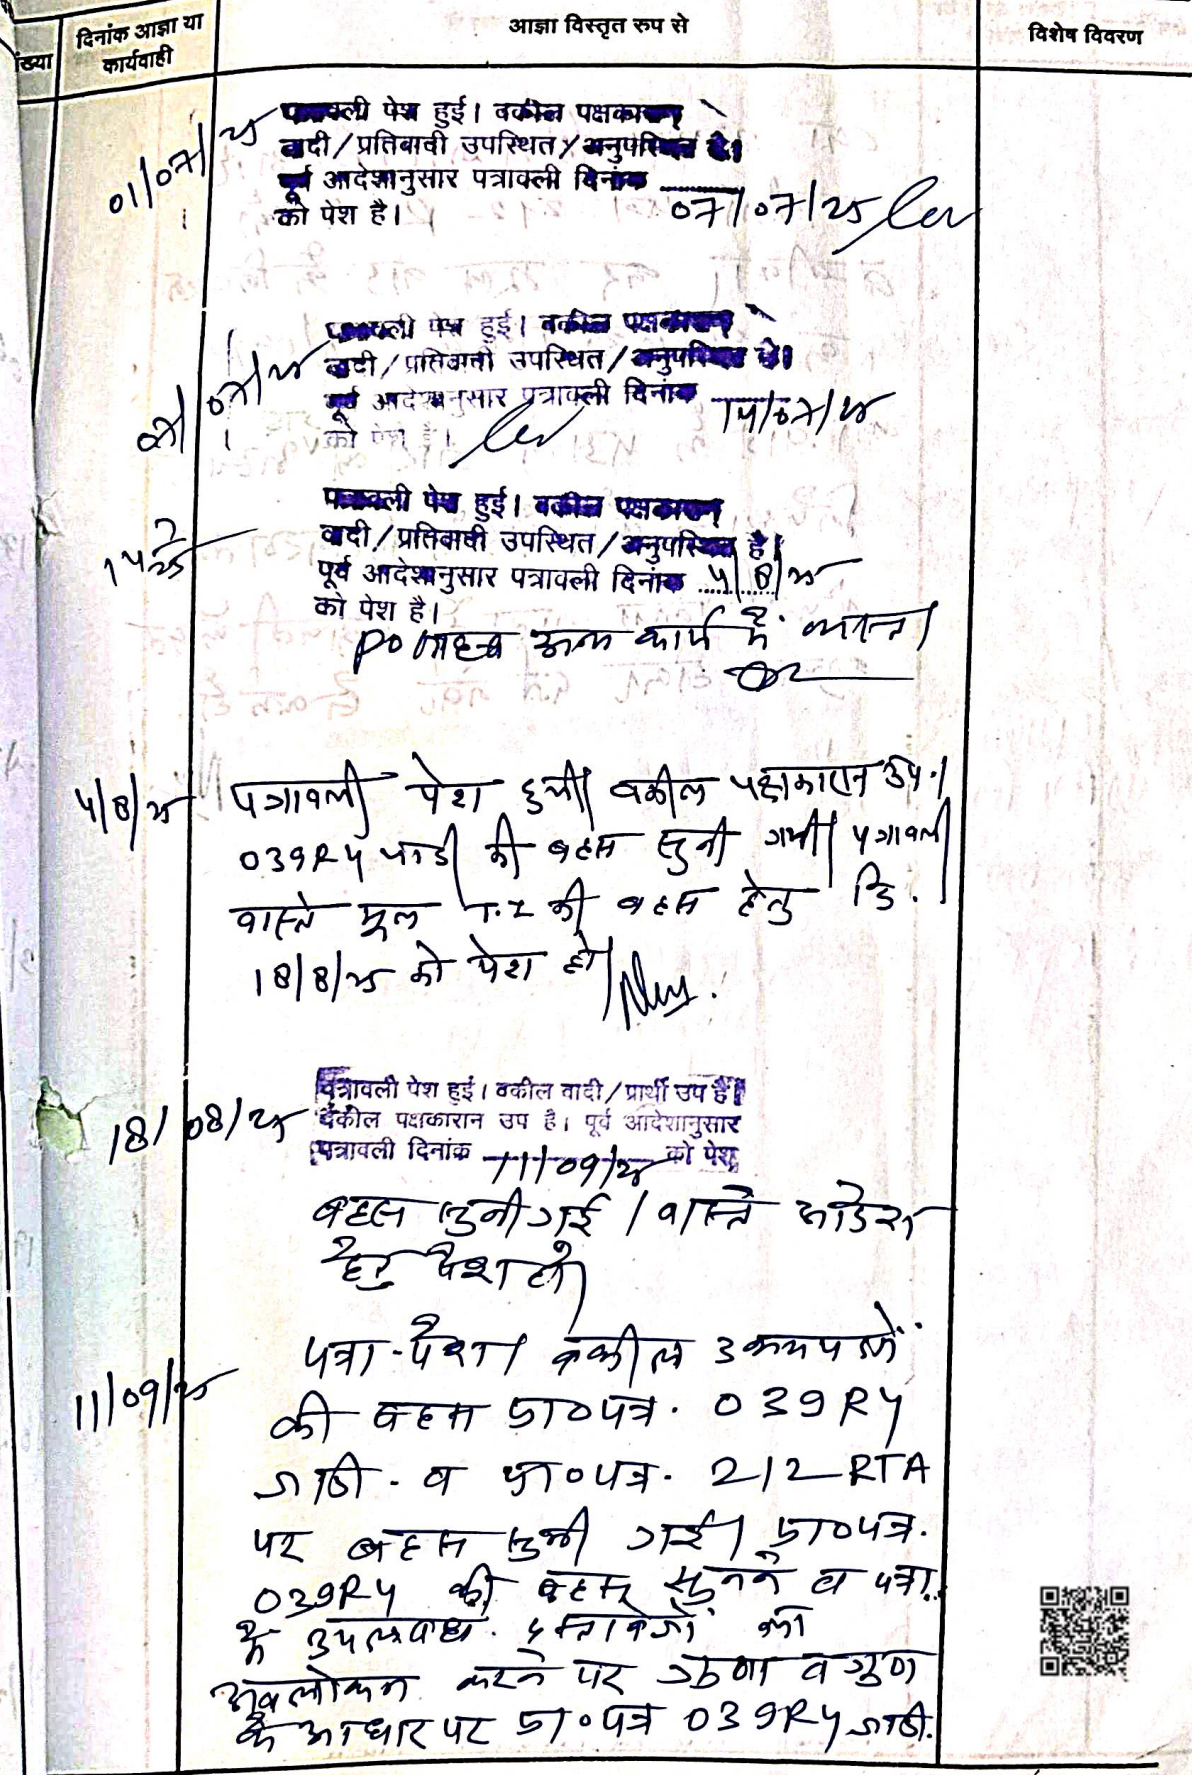 ंख्या
दिनांक आज्ञा या
कार्यवाही
आज्ञा विस्तृत रुप से
विशेष विवरण
01/07/25
पत्रावली पेश हुई। वकील पक्षकारान
वादी/प्रतिवादी उपस्थित/अनुपस्थित है।
पूर्व आदेशानुसार पत्रावली दिनांक 07/07/25
को पेश है।
07/07/25
पत्रावली पेश हुई। वकील पक्षकारान
वादी/प्रतिवादी उपस्थित/अनुपस्थित है।
पूर्व आदेशानुसार पत्रावली दिनांक 14/07/25
को पेश है।
14/7/25
पत्रावली पेश हुई। वकील पक्षकारान
वादी/प्रतिवादी उपस्थित/अनुपस्थित है।
पूर्व आदेशानुसार पत्रावली दिनांक 4/8/25
को पेश है।
PO अन्य कार्य में व्यस्त।
4/8/25
पत्रावली पेश हुयी। वकील पक्षकारान उप.।
039R4 की बहस सुनी गयी। पत्रावली
वास्ते मूल T.I की बहस हेतु दि.
18/8/25 को पेश हो।
18/08/25
पत्रावली पेश हुई। वकील वादी/प्रार्थी उप है।
वकील पक्षकारान उप है। पूर्व आदेशानुसार
पत्रावली दिनांक 11/09/25 को पेश
बहस सुनी गई। वास्ते आदेश
हेतु पेश हो।
11/09/25
पत्रा. पेश। वकील उभयपक्षों
की बहस प्रा०पत्र. 039R4
जा०दी. व प्रा०पत्र. 212 RTA
पर बहस सुनी गई। प्रा०पत्र.
039R4 की बहस सुनने व पत्रा.
के उपलब्ध दस्तावेजों का
अवलोकन करने पर व गुण
के आधार पर प्रा०पत्र 039R4 जा०दी.